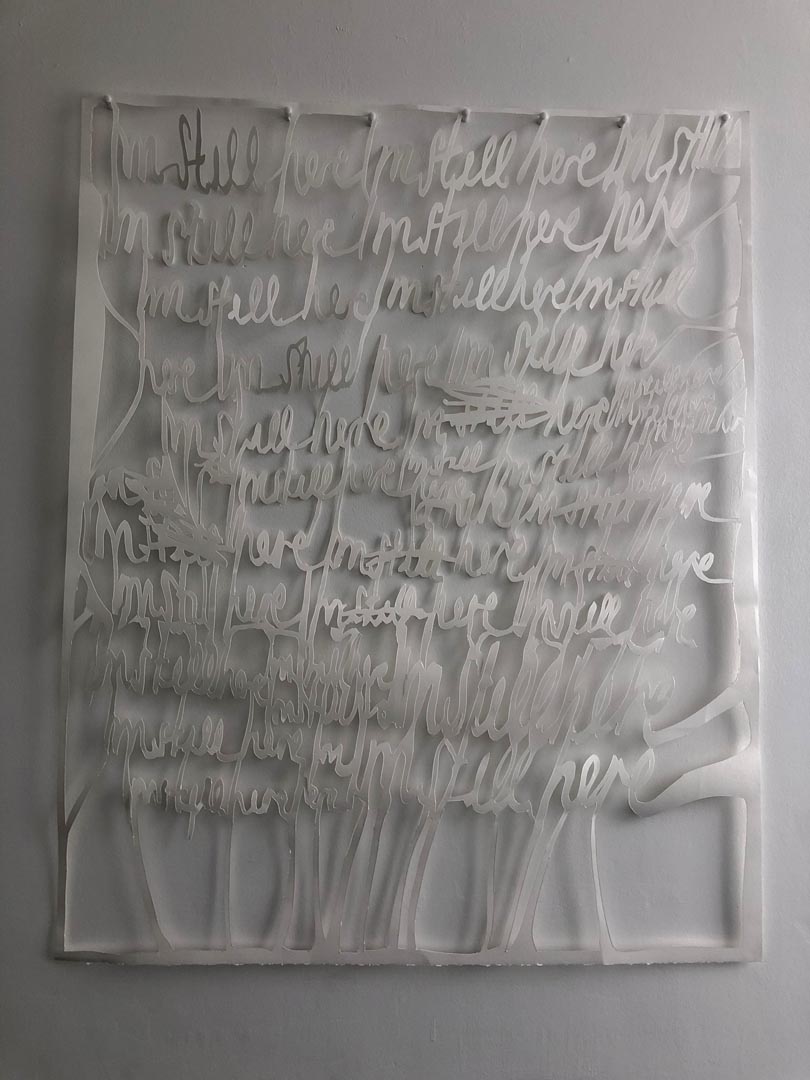 Im still here Im still here Im still
Im still here Im still here here
Im still here Im still here Im still
here Im still here Im still here
Im still here Im still here
Im still here Im still Im still here
Im still here
Im still here Im still here Im still here
Im still here Im still here Im still here
Im still here Im still here
Im still here Im Im still here
Im still here